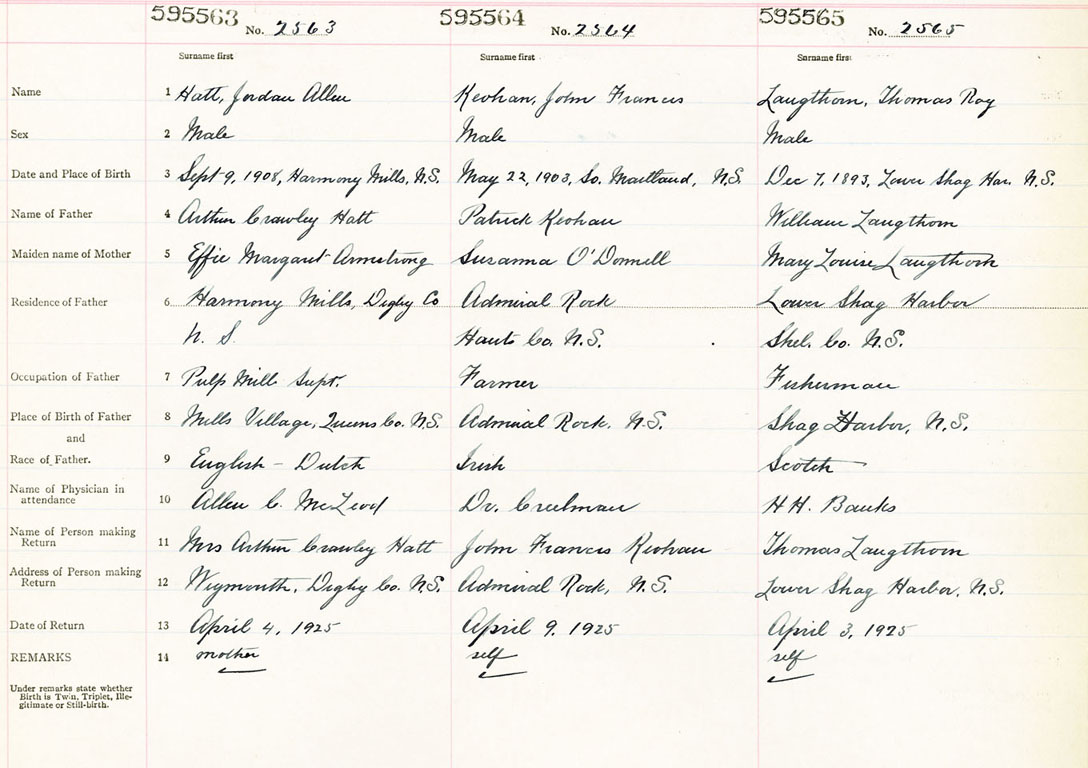 595563 No. 2563 595564 No. 2564 595565 No. 2565
Surname first Surname first Surname first
Name 1 Hatt, Jordan Allen Keohan, John Francis Langthorn, Thomas Roy
Sex 2 Male Male Male
Date and Place of Birth 3 Sept 9, 1908, Harmony Mills, N.S. May 22, 1903, So. Maitland, N.S. Dec 7, 1893, Lower Shag Har. N.S.
Name of Father 4 Arthur Crawley Hatt Patrick Keohan William Langthorn
Maiden name of Mother 5 Effie Margaret Armstrong Suzanna O'Donnell Mary Louise Langthorn
Residence of Father 6 Harmony Mills, Digby Co Admiral Rock Lower Shag Harbor
N. S. Hants Co. N.S. Shel. Co. N.S.
Occupation of Father 7 Pulp Mill Supt. Farmer Fisherman
Place of Birth of Father 8 Mills Village, Queens Co. N.S. Admiral Rock. N.S. Shag Harbor, N.S.
and
Race of Father. 9 English - Dutch Irish Scotch
Name of Physician in
attendance 10 Allen C. McLeod Dr. Creelman H H. Banks
Name of Person making
Return 11 Mrs Arthur Crawley Hatt John Francis Keohan Thomas Langthorn
Address of Person making
Return 12 Weymouth, Digby Co. N.S. Admiral Rock, N.S. Lower Shag Harbor, N.S.
Date of Return 13 April 4, 1925 April 9, 1925 April 3, 1925
REMARKS 14 mother self self
Under remarks state whether
Birth is Twin, Triplet, Ille-
gitimate or Still-birth.